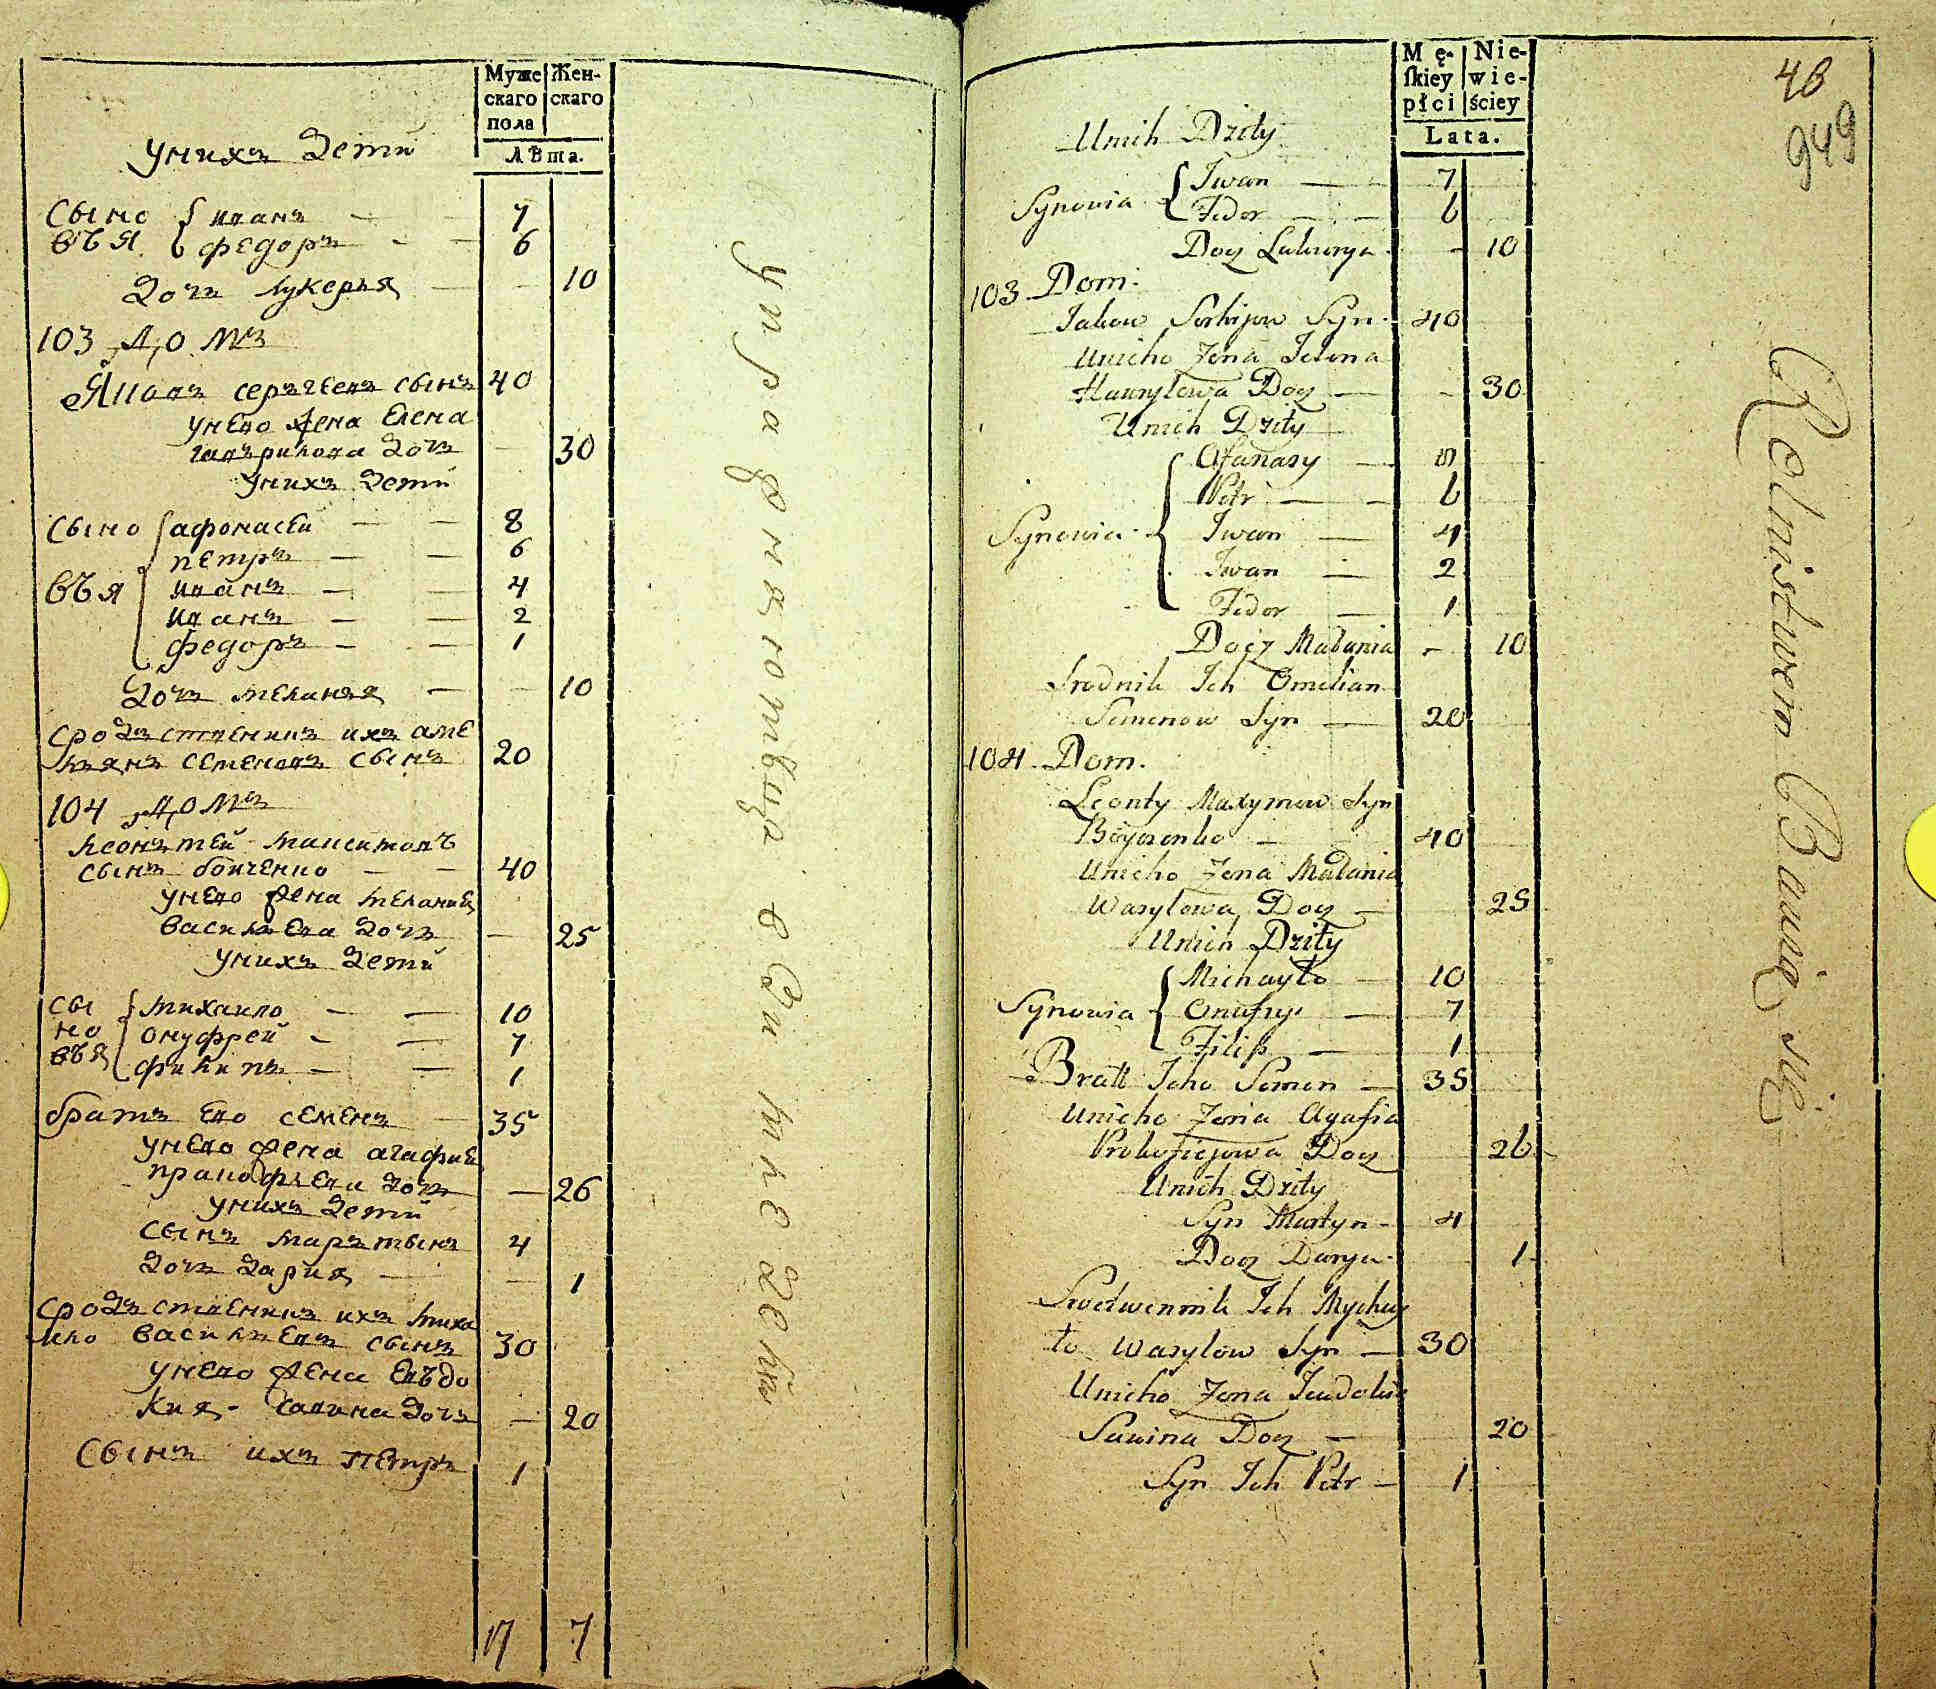 Муже
скаго
пола
Жен-
скаго
Лѣта.
унихъ дети
сыно иванъ — — 7
вья федоръ — — 6
дочь лукерья — — 10
103 домъ
Яковъ серъгеевъ сынъ 40
унево жена елена
гавърилова дочь — 30
унихъ дети
сыно афонасей — — 8
петръ — — 6
вья иванъ — — 4
иванъ — — 2
федоръ — — 1
дочь меланья — — 10
сродственникъ ихъ аме
льянъ семеновъ сынъ 20
104 домъ
леонътей максимовъ
сынъ бойченко — — 40
унево жена мелания
васильева дочь — 25
унихъ дети
сы михаило — — 10
но онуфрей — — 7
вья филипъ — — 1
братъ ево семенъ — 35
унево жена агафия
пракофьева дочь — 26
унихъ дети
сынъ марътынъ 4
дочь дария — — 1
сродственникъ ихъ миха
ило васильевъ сынъ 30
унево жена евъдо
кия савина дочь — 20
сынъ ихъ петръ 1
17 7
упражняютьца в винокурении
Mę-
skiey
płci
Nie-
wie-
ściey
Lata.
48
949
Unich Dzity
Synowia Iwan — 7
Fedor — — 6
Docz Lukerya — 10
103 Dom.
Jakow Serhijow Syn 40
Unieho Zona Jelena
Hawryłowa Docz — - 30
Unich Dzity
Afanasy — 8
Petr — — 6
Synowia Iwan — 4
Iwan — 2
Fedor — 1
Docz Małania - 10
Srodnik Ich Omelian
Semenow Syn — 20
104 Dom.
Leonty Maxymow Syn
Boyczenko — 40
Unieho Zona Małania
Wasylowa Docz — 25
Unich Dzity
Michayło — 10
Synowia Onufry — 7
Filip — 1
Bratt Jeho Semen — 35
Unieho Zona Agafia
Prokofiejowa Docz 26
Unich Dzity
Syn Martyn - 4
Docz Darya - 1
Srodwennik Ich Mychay
ło Wasylow Syn — 30
Unieho Zona Jewdokia
Sawina Docz — 20
Syn Ich Petr — 1
Rolnistwem Bawią się